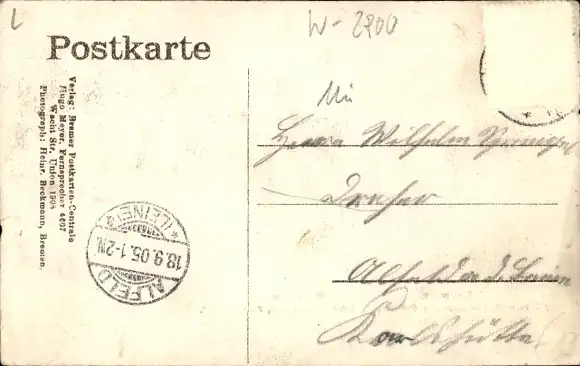 L
W-2200
Postkarte
Verlag: Bremer Postkarten-Centrale
Hugo Meyer, Fernsprecher 4667
Wacht Str. Union 1905
Photograph: Heinr. Beckmann, Bremen.
ALFELD
18.9.05.1-2N.
* (LEINE) *
An
Herrn Wilhelm
Dreher
Alfeld a. d. Leine
Karlshütte